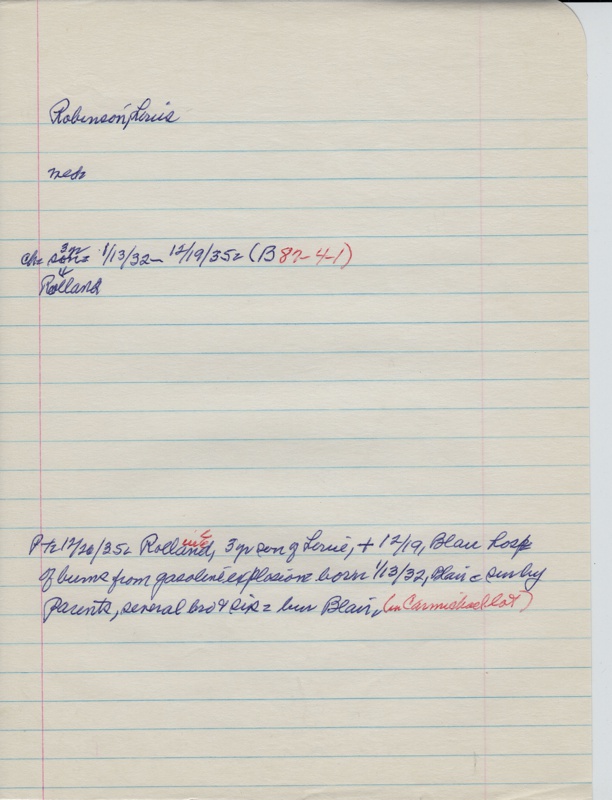 Robinson, Louie
ch= 3 yr son= 1/13/32- 12/19/35= (B 87-4-1)
Rolland
Pt= 12/20/35= Rolland, 3 yr son of Louie, + 12/19, Blair hosp
of burns from gasoline explosion= born 1/13/32, Blair = surv by
parents, several bro & sis = bur Blair, (in Carmichael lot)